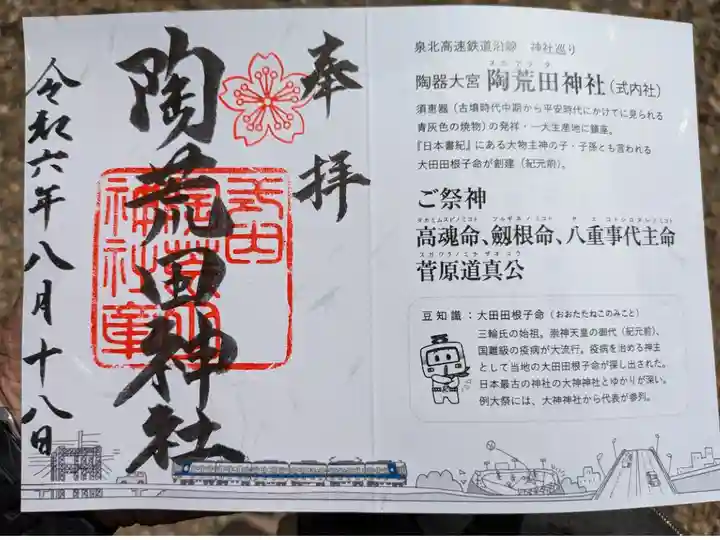 奉拝
陶荒田神社
令和六年八月十八日
式内
泉北高速鉄道沿線 神社巡り
スエアラタ
陶器大宮 陶荒田神社(式内社)
須恵器(古墳時代中期から平安時代にかけてに見られる
青灰色の焼物)の発祥・一大生産地に鎮座。
『日本書紀』にある大物主神の子・子孫とも言われる
大田田根子命が創建(紀元前)。
ご祭神
タカミムスビノミコト ツルギネノミコト ヤエコトシロヌシノミコト
高魂命、劔根命、八重事代主命
スガワラノミチザネコウ
菅原道真公
豆知識:大田田根子命(おおたたねこのみこと)
三輪氏の始祖。崇神天皇の御代(紀元前)、
国難級の疫病が大流行。疫病を治める神主
として当地の大田田根子命が探し出された。
日本最古の神社の大神神社とゆかりが深い。
例大祭には、大神神社から代表が参列。